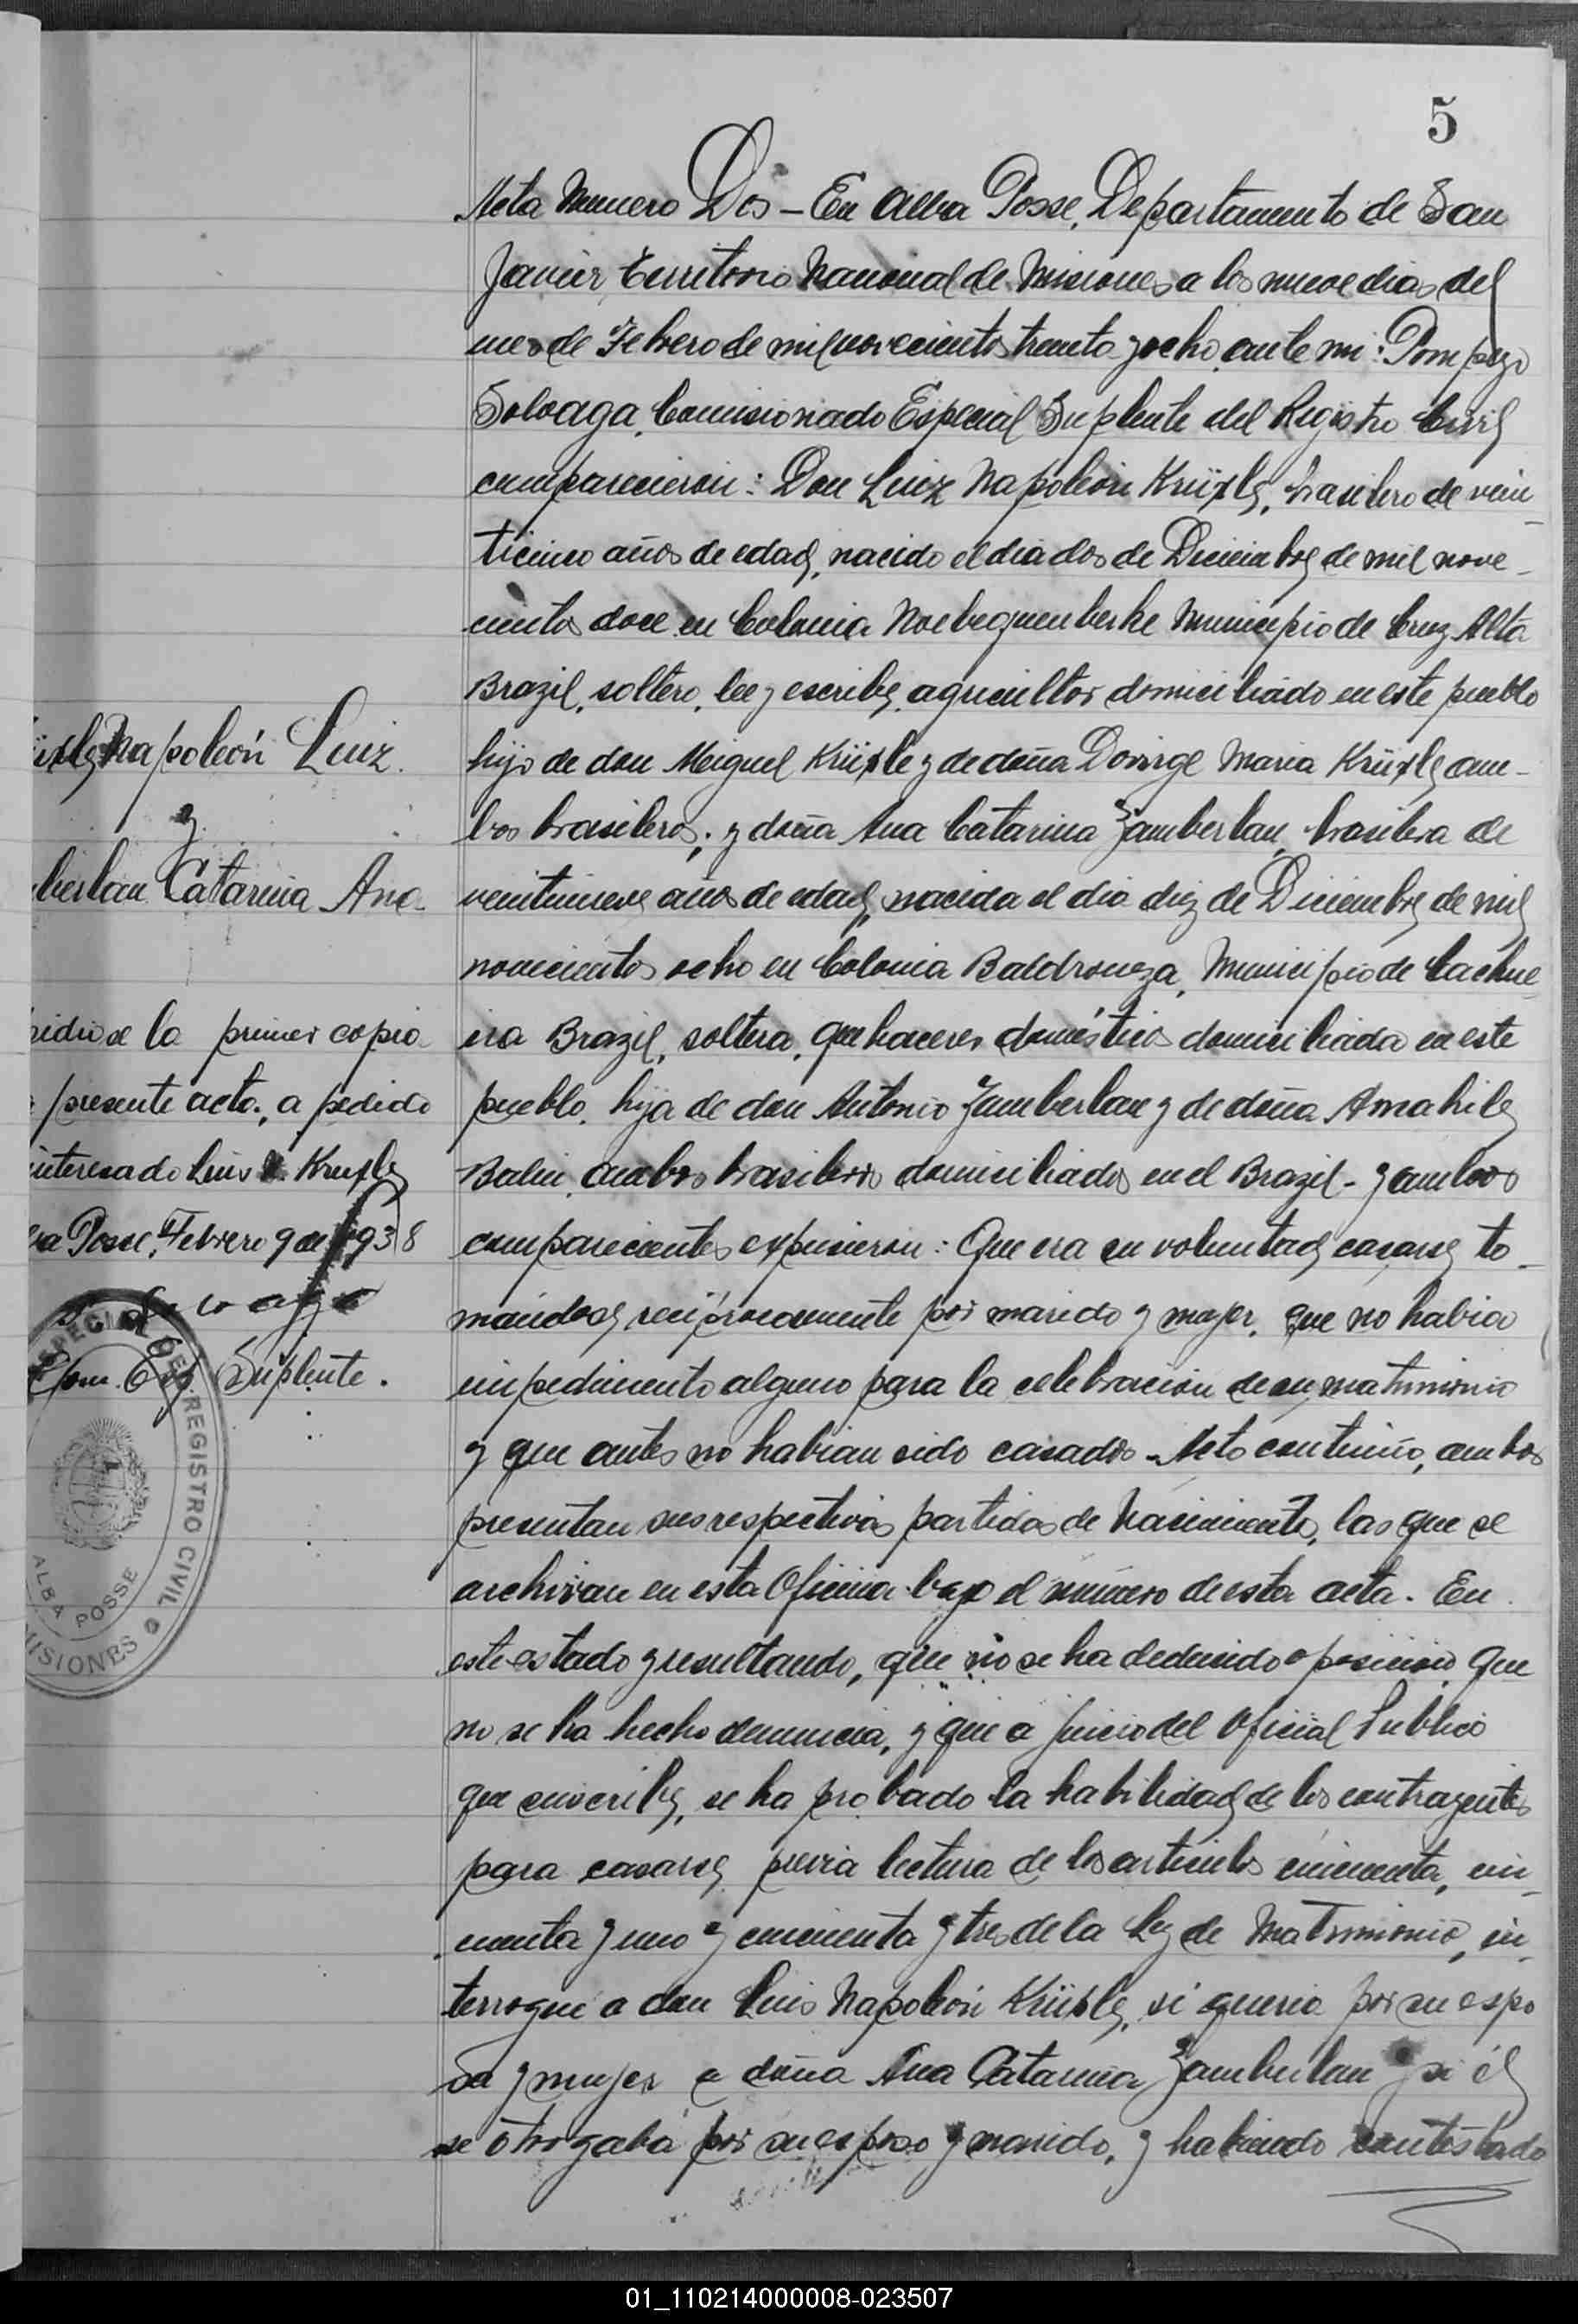 5
Acta Numero Dos – En Alba Posse, Departamento de San
Javier, Territorio Nacional de Misiones a los nueve dias del
mes de Febrero de mil novecientos treinta y ocho, ante mi: Pompeyo
Solvaga, Comisionado Especial Suplente del Registro Civil
comparecieron: Don Luiz Napoleón Krüxle, brasilero de vein-
ticinco años de edad, nacido el dia dos de Diciembre de mil nove-
cientos doce en Colonia Municipio de Cruz Alta
Brazil, soltero, lee y escribe, agricultor domiciliado en este pueblo
hijo de don Miguel Krüxle y de doña Maria Krüxle am-
bos brasileros; y doña Ana Catarina Zamberlan, brasilera de
veintinueve años de edad, nacida el dia diez de Diciembre de mil
novecientos ocho en Colonia Municipio de Cachue-
ira Brazil, soltera, quehaceres domésticos domiciliada en este
pueblo. hija de don Antonio Zamberlan y de doña Amabile
Balin, ambos brasileros domiciliados en el Brazil - y ambos
comparecientes expusieron: Que era su voluntad casarse to-
mandose reciprocamente por marido y mujer, que no habia
impedimento alguno para la celebracion de su matrimonio
y que antes no habian sido casados - Acto continuo, ambos
presentan sus respectivas partidas de Nacimiento, las que se
archivan en esta Oficina bajo el número de esta acta. En
este estado y resultando, que no se ha deducido oposicion, que
no se ha hecho denuncia, y que a juicio del Oficial Publico
que suscribe, se ha probado la habilidad de los contrayentes
para casarse, previa lectura de los articulos cincuenta, cin-
cuenta y uno y cincuenta y tres de la Ley de Matrimonio, in-
terrogue a don Luis Napoleón Krüxle, si queria por su espo
sa y mujer a doña Ana Catarina Zamberlan y si él
se otorgaba por su esposo y marido, y habiendo contestado
üxle Napoleón Luiz.
y
berlan Catarina Ana
pidiose la primer copia
presente acto, a pedido
interesado Luis Kruxle
ba Posse, Febrero 9 de 1938
Com. Esp. Suplente.
ESPECIAL DEL REGISTRO CIVIL
ALBA POSSE
MISIONES
01_110214000008-023507